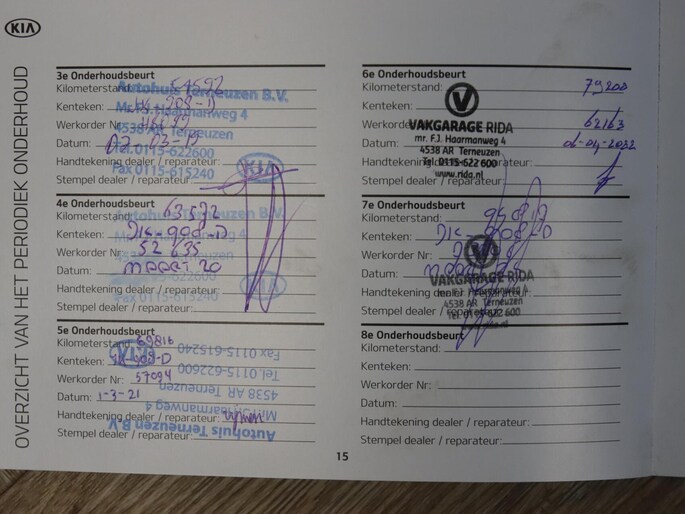 KIA
OVERZICHT VAN HET PERIODIEK ONDERHOUD
3e Onderhoudsbeurt
Kilometerstand: 54592
Kenteken: -908-D
Werkorder Nr:
Datum: 03-19
Handtekening dealer / reparateur:
Stempel dealer / reparateur:
Autohuis Terneuzen B.V.
Mr. F.J. Haarmanweg 4
4538 AR Terneuzen
Tel. 0115-622600
Fax 0115-615240
KIA
4e Onderhoudsbeurt
Kilometerstand: 63.592
Kenteken: -908-D
Werkorder Nr: 52 635
Datum: maart 20
Handtekening dealer / reparateur:
Stempel dealer / reparateur:
Autohuis Terneuzen B.V.
Mr. F.J. Haarmanweg 4
4538 AR Terneuzen
Tel. 0115-622600
Fax 0115-615240
KIA
5e Onderhoudsbeurt
Kilometerstand: 69816
Kenteken: -908-D
Werkorder Nr: 57094
Datum: 1-3-21
Handtekening dealer / reparateur:
Stempel dealer / reparateur:
Autohuis Terneuzen B.V.
Mr. F.J. Haarmanweg 4
4538 AR Terneuzen
Tel. 0115-622600
Fax 0115-615240
KIA
15
6e Onderhoudsbeurt
Kilometerstand: 79200
Kenteken:
Werkorder Nr: 62163
Datum: 06-04-2022
Handtekening dealer / reparateur:
Stempel dealer / reparateur:
VAKGARAGE RIDA
mr. F.J. Haarmanweg 4
4538 AR Terneuzen
Tel: 0115-622 600
www.rida.nl
7e Onderhoudsbeurt
Kilometerstand:
Kenteken: -908-D
Werkorder Nr:
Datum: maart
Handtekening dealer / reparateur:
Stempel dealer / reparateur:
VAKGARAGE RIDA
mr. F.J. Haarmanweg 4
4538 AR Terneuzen
Tel: 0115-622 600
www.rida.nl
8e Onderhoudsbeurt
Kilometerstand:
Kenteken:
Werkorder Nr:
Datum:
Handtekening dealer / reparateur:
Stempel dealer / reparateur: